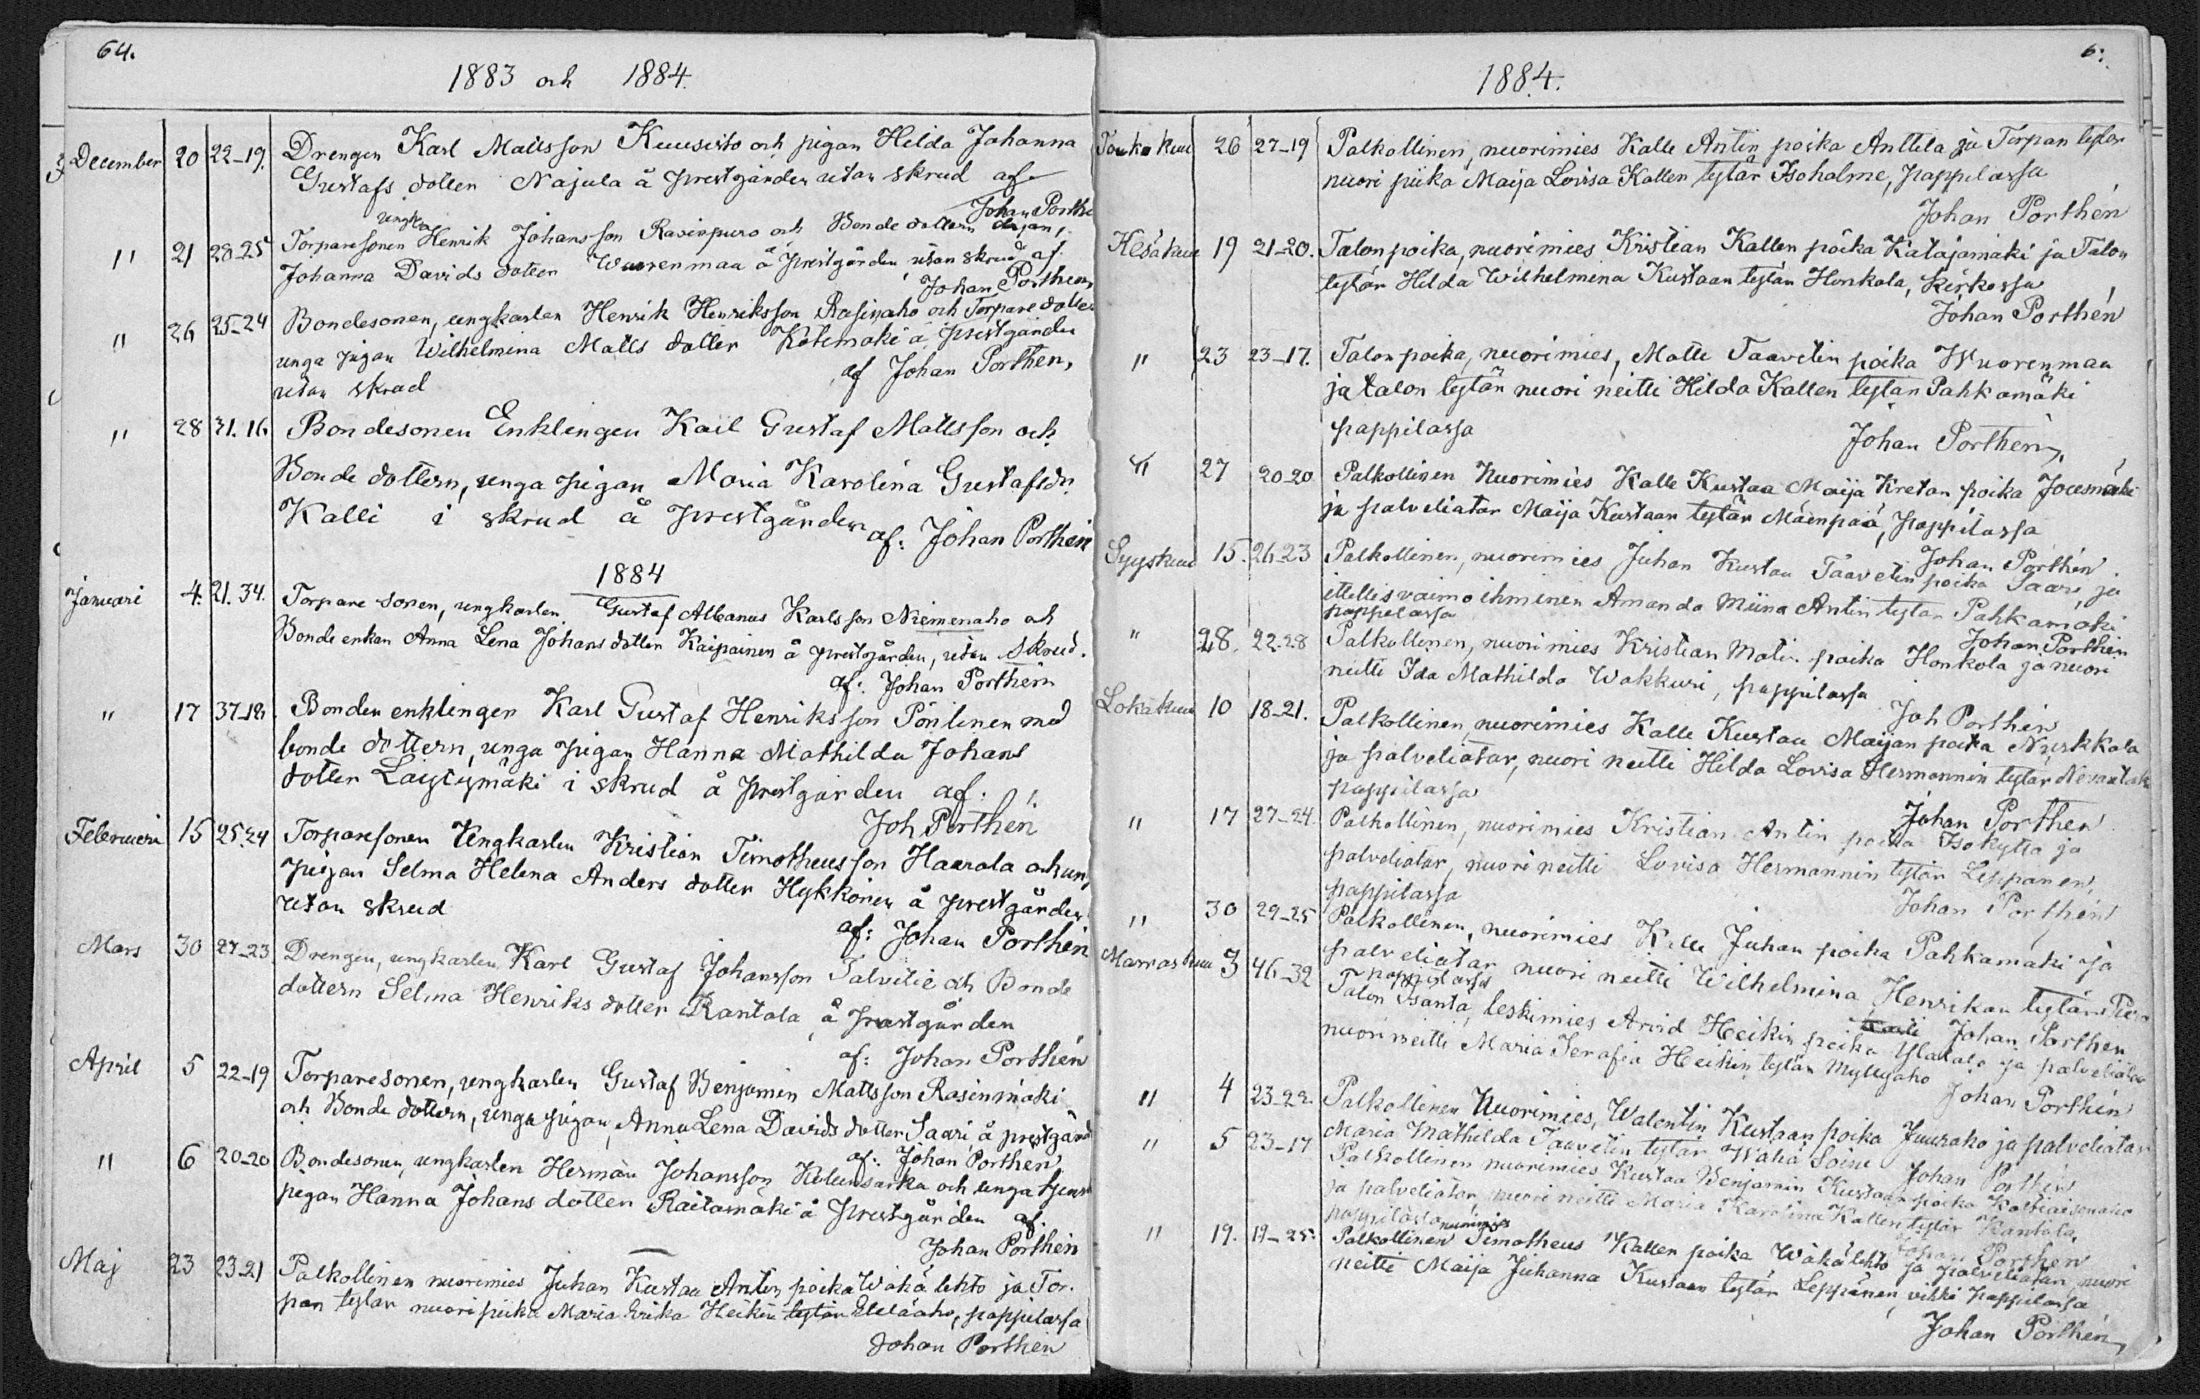 64.
1883 och 1884.
December 20 22-19. Drengen Karl Mattsson Kuusisto och pigan Hilda Johanna
Gustafs dotter Najula å prestgården utan skrud af
Johan Porthe
ungk.
" 21 28-25 Torparesonen Henrik Johansson Rasinpuro och Bonde dottern
Johanna Davids dotter Wuorenmaa å prestgården utan skrud af
Johan Porthen
" 26 25-24 Bondesonen, ungkarlen Henrik Henriksson Rasinaho och Torpare dotter
unga pigan Wilhelmina Matts dotter Kotemäki å prestgården
utan skrud af Johan Porthen,
" 28 31. 16 Bondesonen Enklingen Karl Gustaf Mattsson och
Bonde dottern, unga pigan Maria Karolina Gustafsdr.
Kalli i skrud å prestgården af: Johan Porthén
1884
Januari 4. 21. 34. Torpare sonen, ungkarlen Gustaf Albanus Karlsson Niemenaho och
Bonde enkan Anna Lena Johans dotter Kaipainen å prestgården, utan skrud.
af: Johan Porthén
" 17 37-18. Bonden enklingen Karl Gustaf Henriksson Pöntinen med
bonde dottern, unga pigan Hanna Mathilda Johans
dotter Läytymäki i skrud å prestgården af:
Joh Porthén
Februari 15 25.24 Torparesonen Ungkarlen Kristian Timotheusson Haarala och ung
pigan Selma Helena Anders dotter Hykkönen å prestgården
utan skrud
af: Johan Porthén
Mars 30 27-23 Drengen, ungkarlen Karl Gustaf Johansson Talvitie och Bonde
dottern Selma Henriks dotter Rantala å prestgården
af: Johan Porthén
April 5 22-19 Torparesonen, ungkarlen Gustaf Benjamin Mattsson Rasinmäki
och Bonde dottern, unga pigan Anna Lena Davids dotter Saari å prestgård
af: Johan Porthén
" 6 20-20 Bondesonen, ungkarlen Herman Johansson och unga
pigan Hanna Johans dotter Raitamäki å prestgården af.
Johan Porthén
Maj 23 23.21 Palkollinen nuorimies Juhan Kustaa Antin poika Wähä lehto ja Tor-
pan tytär nuori piika Maria Erika Heikin tytär Eteläaho, pappilassa
Johan Porthén
6
1884.
Toukokuu 26 27-19 Palkollinen, nuorimies Kalle Antin poika Anttila ja Torpan tytär
nuori piika Maija Lovisa Kallen tytär Isoholme, pappilassa
Johan Porthén
Kesäkuu 19 21-20. Talonpoika, nuorimies Kristian Kallen poika Katajamäki ja Talon
tytär Hilda Wilhelmina Kustaan tytär Honkala, kirkossa
Johan Porthén
" 23 23-17. Talonpoika, nuorimies, Matti Taavetin poika Wuorenmaa
ja talon tytär nuori neitti Hilda Kallen tytär Pahkamäki
pappilassa Johan Porthén,
" 27 20-20 Palkollinen Nuorimies Kalle Kustaa Maija Kretan poika Jousmäki
ja palveliatar Maija Kustaan tytär Mäenpää, pappilassa
Johan Porthén
Syyskuu 15. 26-23 Palkollinen, nuorimies Juhan Kustaa Taavetin poika Saari, ja
itellis vaimoihminen Amanda Miina Antin tytär Pahkamäki
pappilassa Johan Porthén
" 28. 22-28 Palkollinen, nuorimies Kristian Matin poika Honkola ja nuori
neitti Ida Mathilda Wakkuri, pappilassa
Joh Porthén
Lokakuu 10 18-21. Palkollinen, nuorimies Kalle Kustaa Maijan poika Nyrkkola
ja palveliatar, nuori neitti Hilda Lovisa Hermannin tytär
pappilassa
Johan Porthén
" 17 27-24 Palkollinen, nuorimies Kristian Antin poika Isokyttä ja
palveliatar, nuori neitti Lovisa Hermannin tytär Leppänen,
pappilassa
Johan Porthén
" 30 29-25 Palkollinen, nuorimies Kalle Juhan poika Pahkamäki ja
palveliatar nuori neitti Wilhelmina Henrikan tytär
pappilassa Johan Porthén
Marraskuu 3 46-32 Talon Isäntä, leskimies Arvid Heikin poika Ylätalo ja palveliatar
nuori neitti Maria Serafia Heikin tytär Myllyaho
Johan Porthén
" 4 23-22. Palkollinen Nuorimies, Walentin Kustaan poika Juurako ja palveliatar
Maria Mathilda Taavetin tytär Wähä Soini
Johan Porthén
" 5 23-17 Palkollinen nuorimies Kustaa Benjamin Kustaan poika
ja palveliatar, nuori neitti Maria Karolina Kallen tytär Rantala,
pappilassa Johan Porthén
nuorimies
" 19. 19-25. Palkollinen Timotheus Kallen poika Wähälehto ja palveliatar, nuori
neitti Maija Juhanna Kustaan tytär Leppänen, vihki pappilassa
Johan Porthén